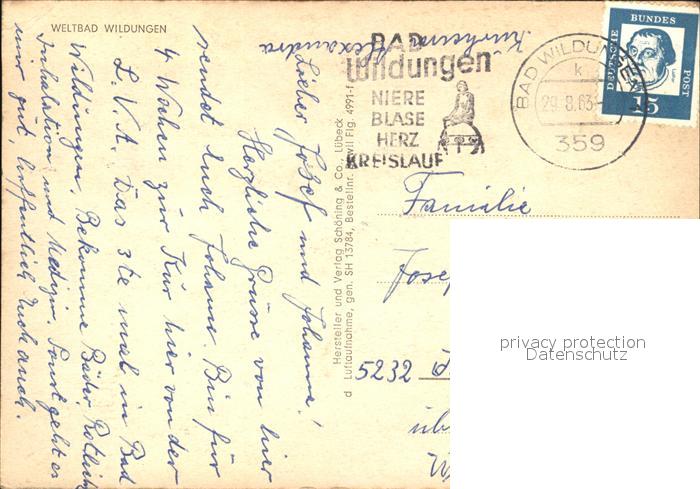 WELTBAD WILDUNGEN
Kurheim Alexandra
Lieber Josef und Johanna!
Herzliche Grüsse von hier
sendet Euch Johann. Bin für
4 Wochen zur Kur hier von der
L.V.A. Das 3te mal in Bad
Wildungen. Bekomme Bäder, Rotlicht
Inhalation und Medizin. Sonst geht es
mir gut, hoffentlich Euch auch.
Hersteller und Verlag Schöning & Co., Lübeck
d Luftaufnahme, gen. SH 13784, Bestellnr. Bawil Flg. 4691-f
BAD
Wildungen
NIERE
BLASE
HERZ
KREISLAUF
BAD WILDUNGEN
k
29.8.63
359
DEUTSCHE
BUNDES
POST
Luther
15
Familie
Jose
5232
üb
privacy protection
Datenschutz